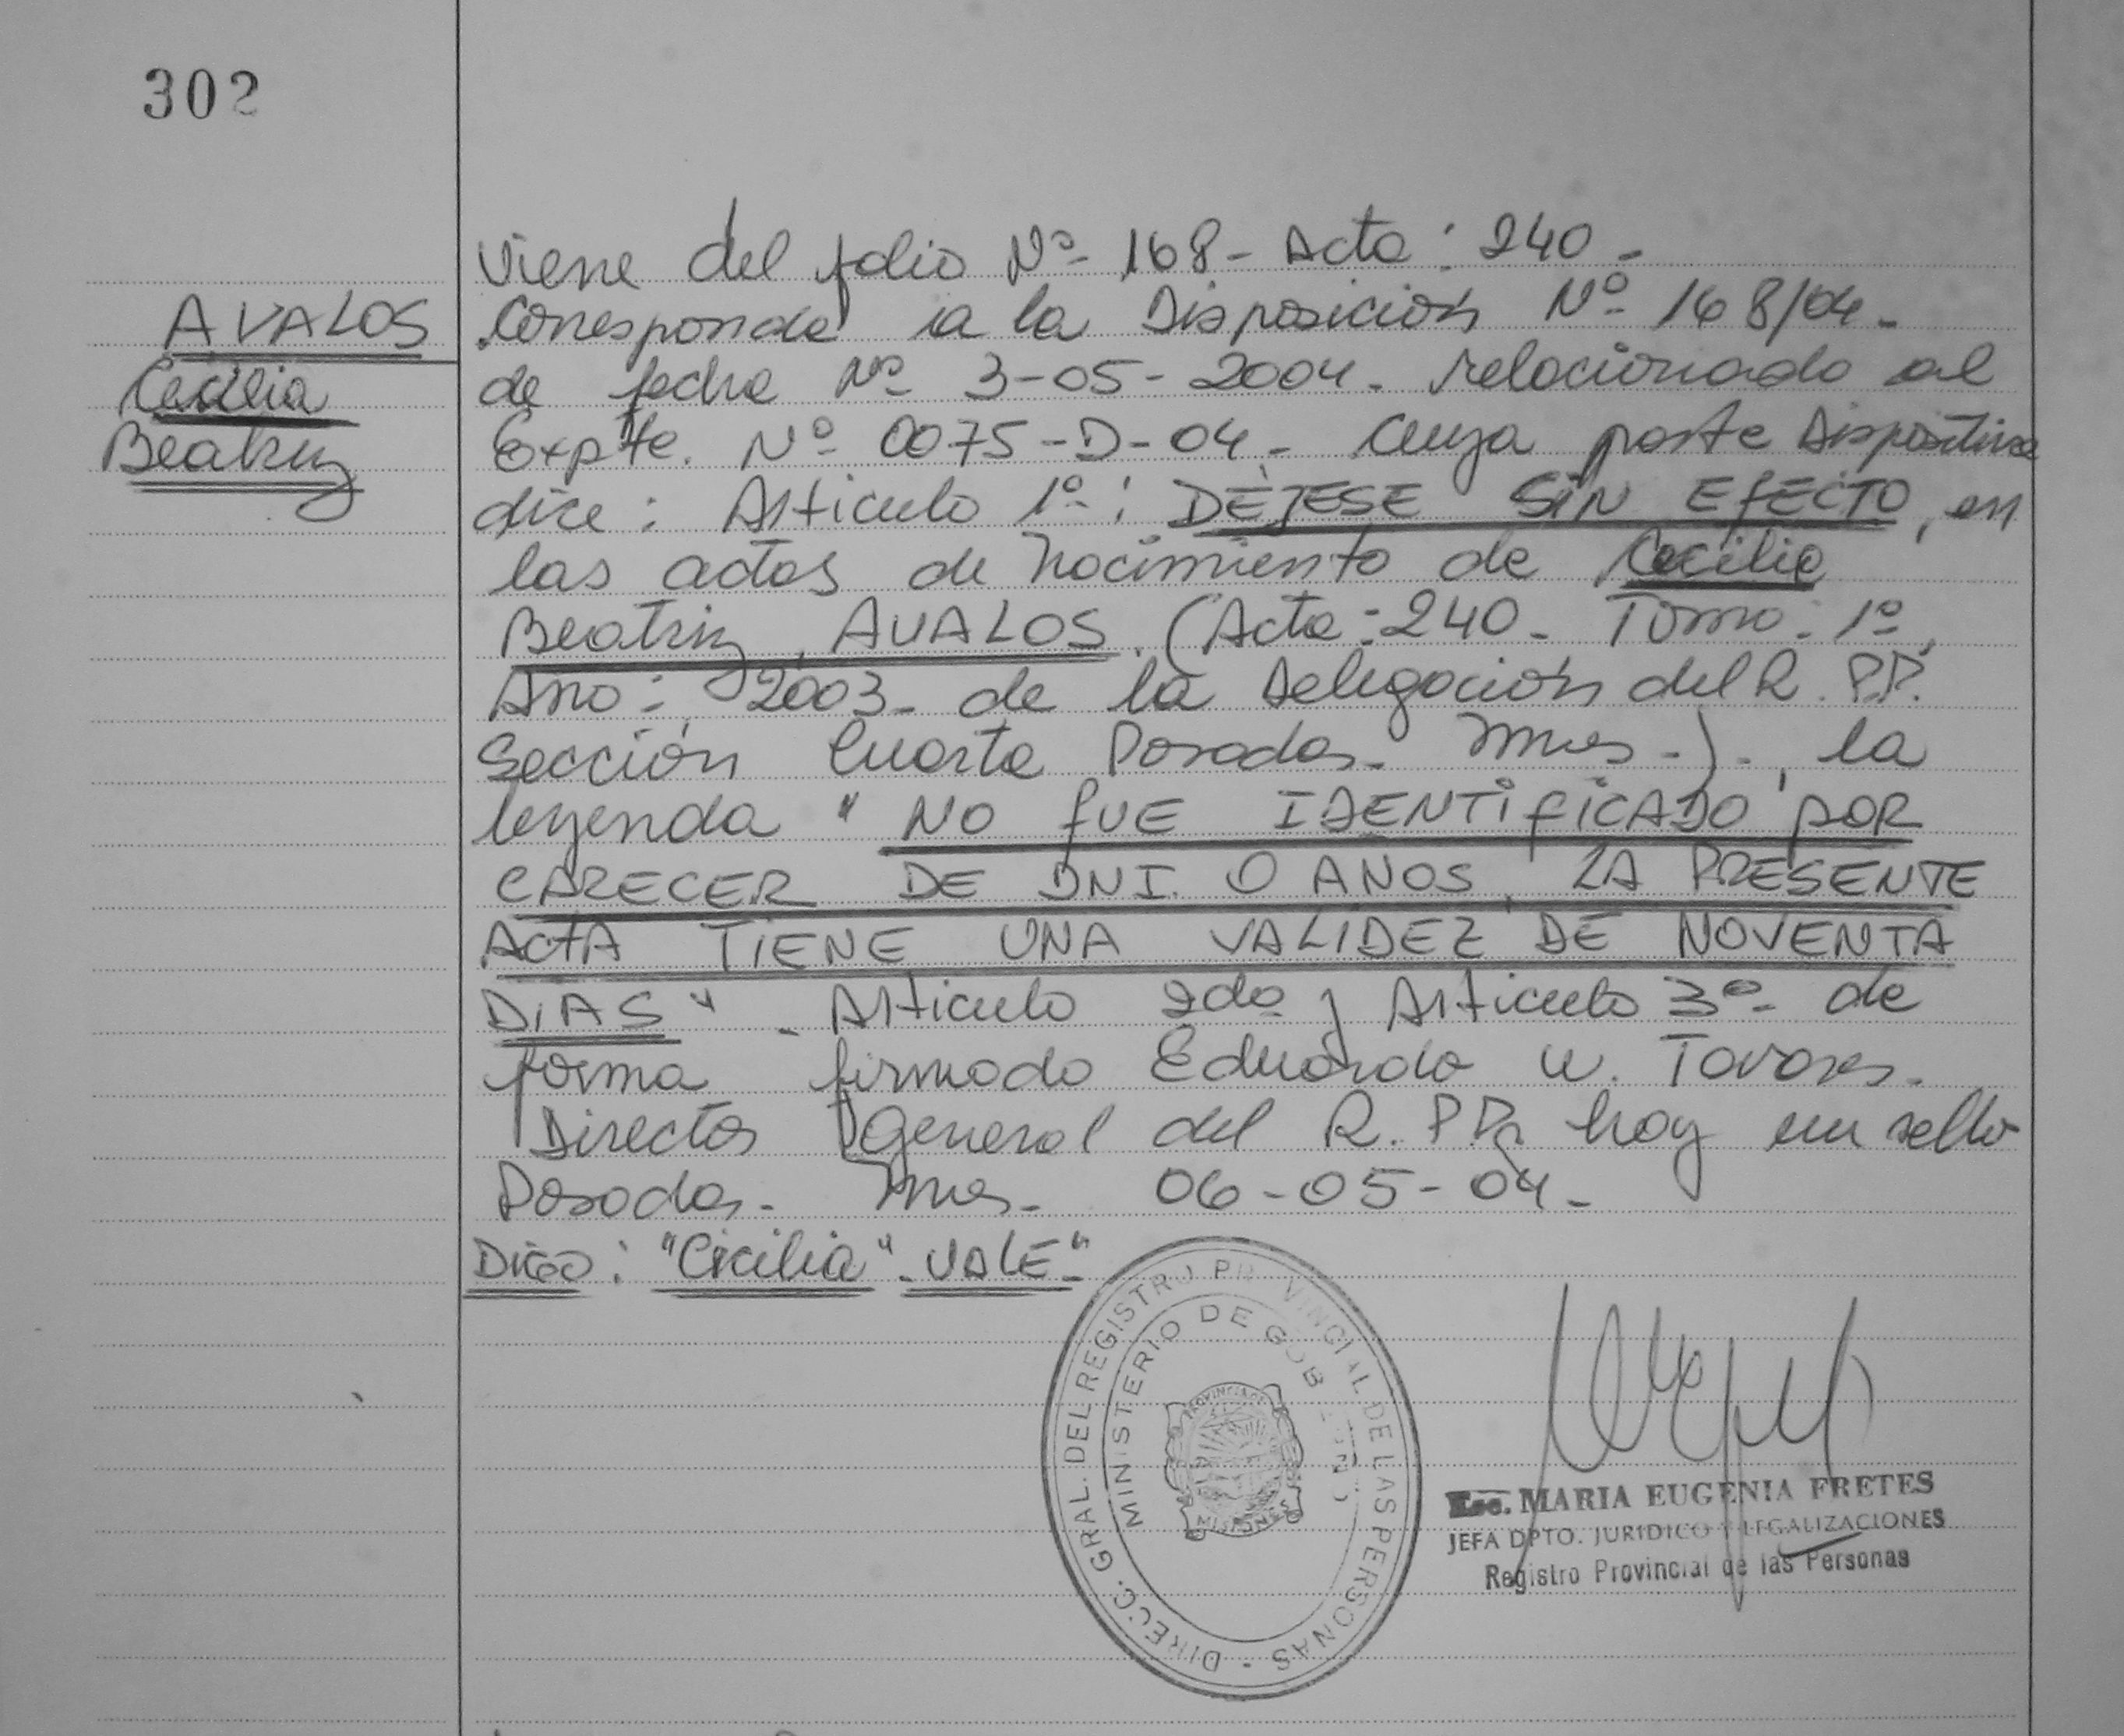 302
AVALOS
Cecilia
Beatriz
Viene del folio Nº 168 - Acta : 240 -
Corresponde a la Disposición Nº 168/04 -
de fecha Nº 3-05-2004 - relacionado al
Expte. Nº 0075-D-04 - Cuya parte Dispositiva
dice : Articulo 1º : DÉJESE SIN EFECTO, en
las actas de nacimiento de Cecilia
Beatriz AVALOS. (Acta : 240 - Tomo : 1º,
Año : 2003 - de la Delegación del R. P.P.
Sección Cuarta Posadas - Mnes -) ., la
leyenda " NO FUE IDENTIFICADO POR
CARECER DE DNI. 0 AÑOS, LA PRESENTE
ACTA TIENE UNA VALIDEZ DE NOVENTA
DIAS " - Articulo 2do y Articulo 3º de
forma firmado Eduardo W. Tavares -
Director General del R. PP. hoy un sello
Posadas - Mnes - 06-05-04 -
Digo : "Cicilia" - VALE"
DIRECC. GRAL. DEL REGISTRO PROVINCIAL DE LAS PERSONAS -
MINISTERIO DE GOBIERNO
PROVINCIA DE
MISIONES
Esc. MARIA EUGENIA FRETES
JEFA DPTO. JURIDICO Y LEGALIZACIONES
Registro Provincial de las Personas